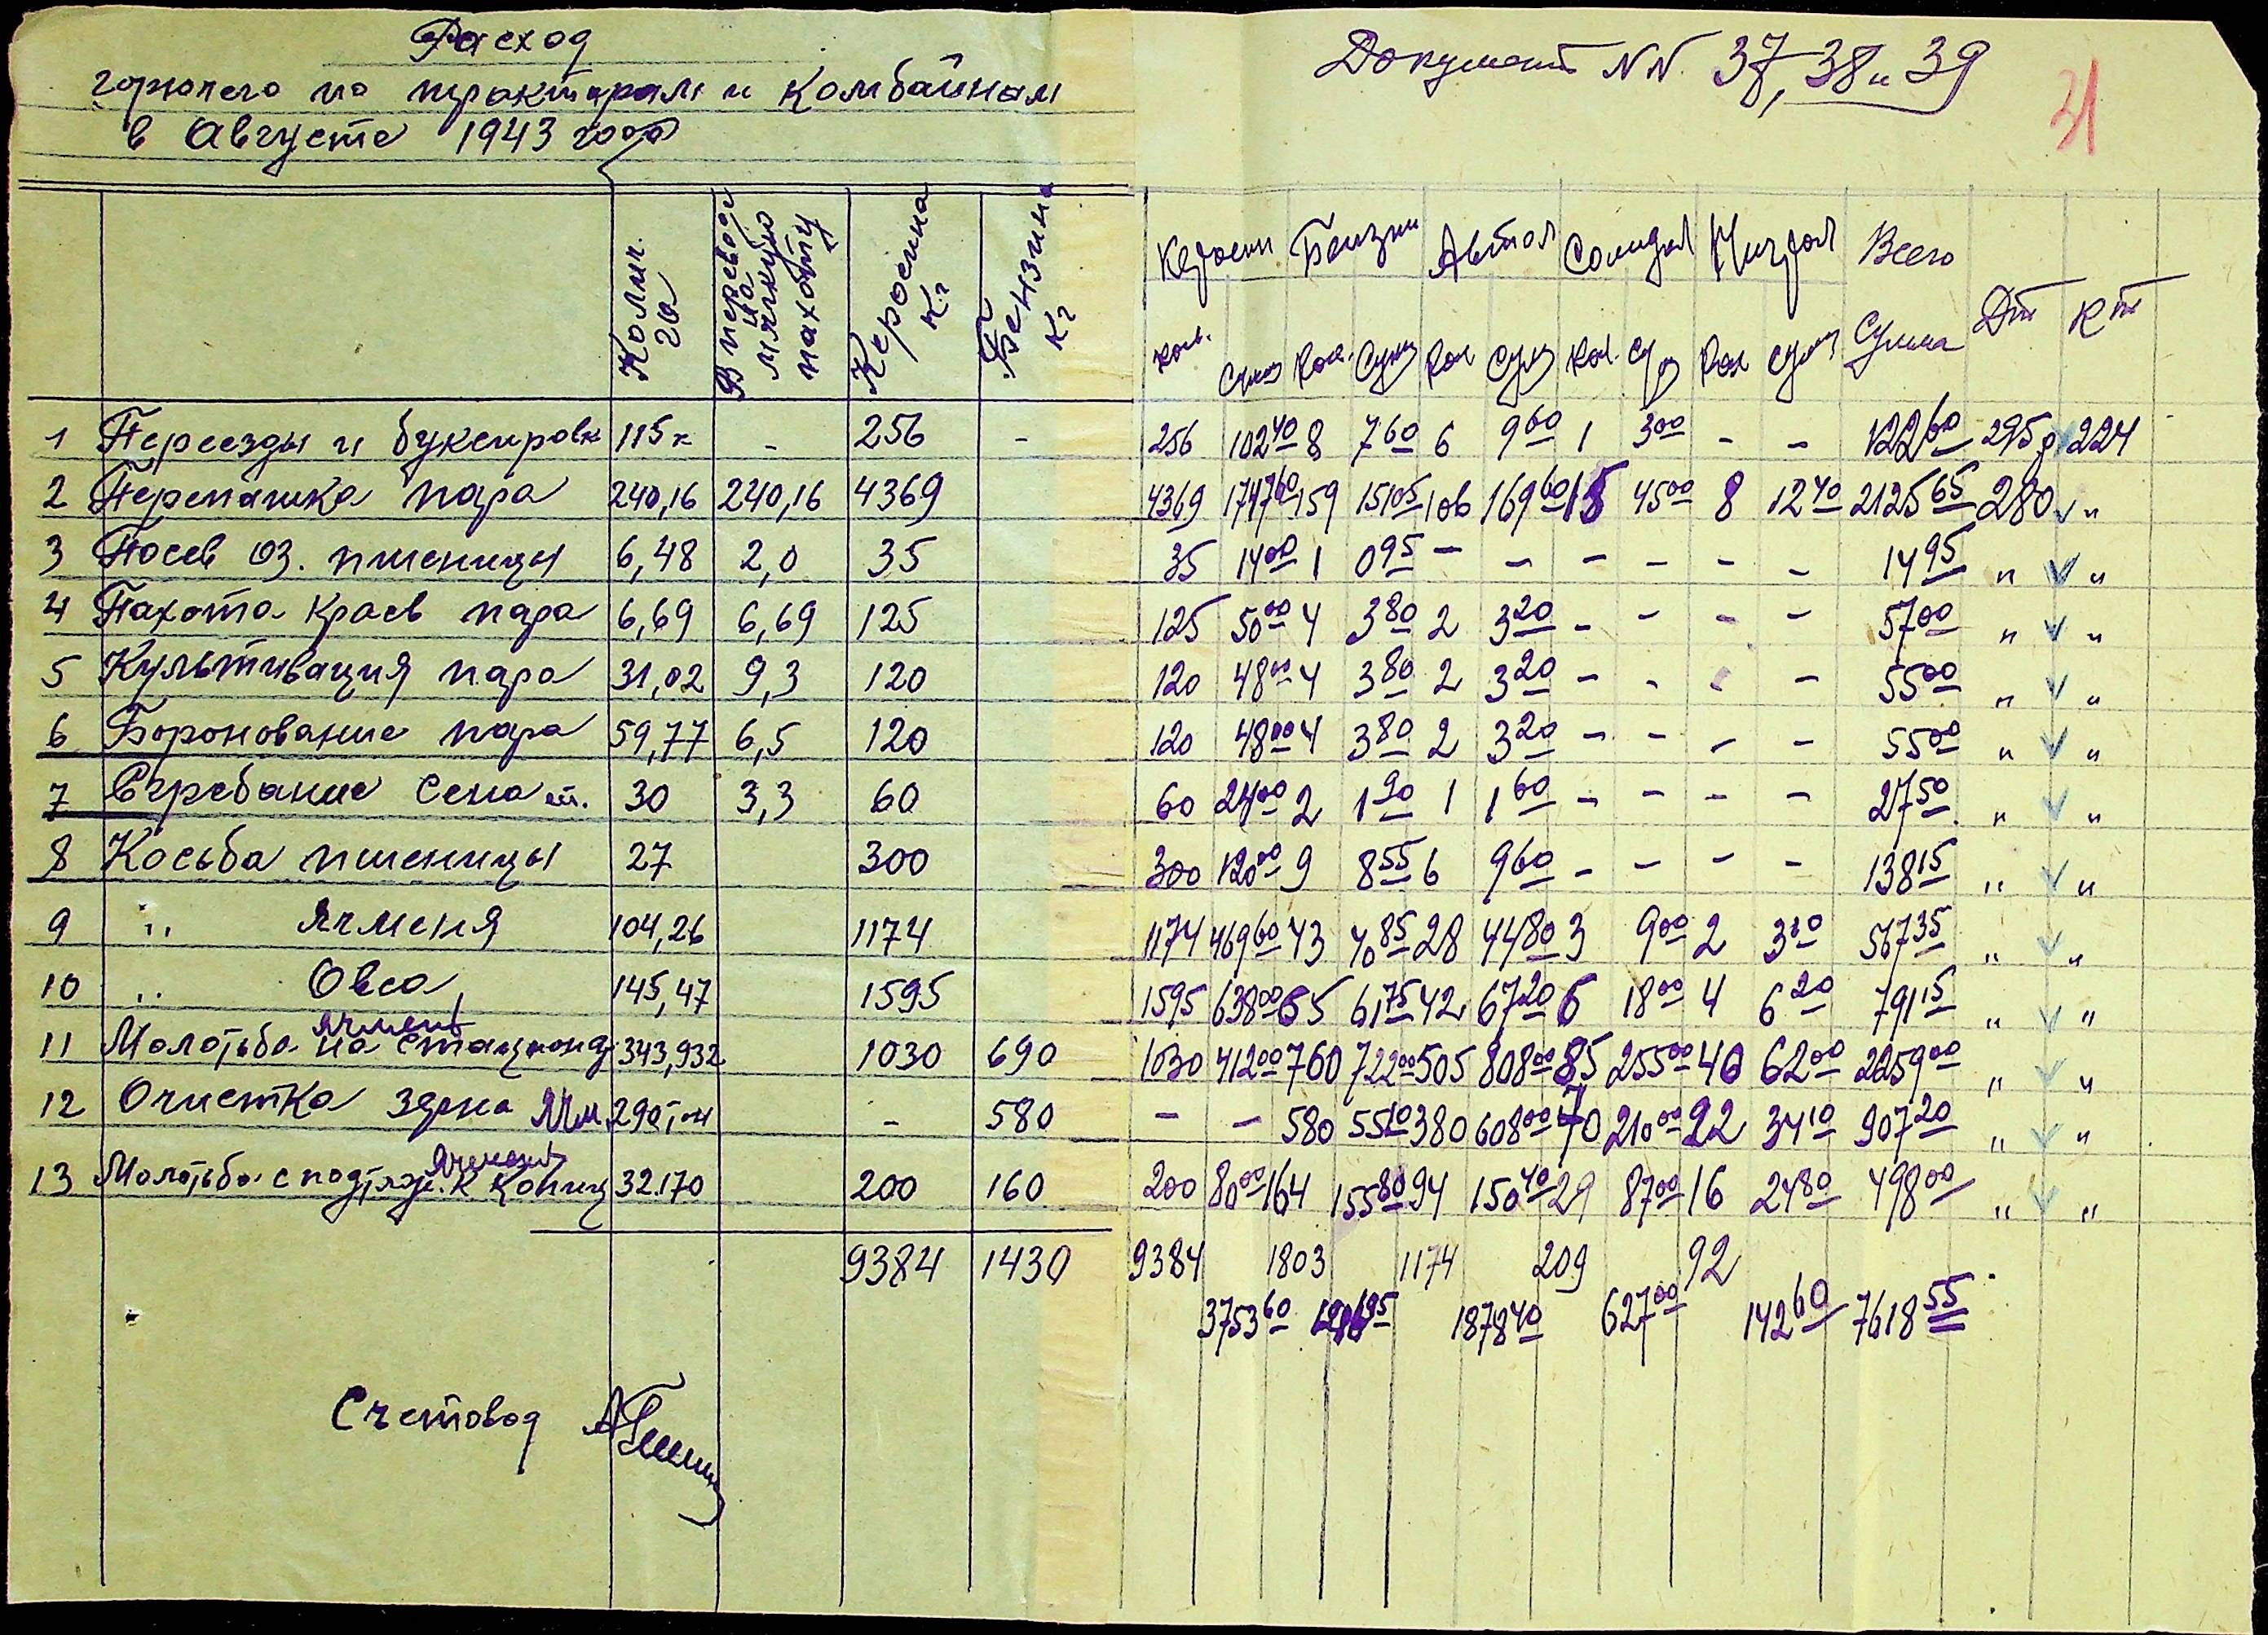 Расход
горючего по тракторам и комбайнам
в Августе 1943 года
Документ NN. 37, 38 и 39
31
Колич. га | В переводе на мягкую пахоту | Керосина кг | Бензина кг | Керосин | Бензин | Автол | Солидол | Нигрол | Всего
Кол. Сумма Кол. Сумма Кол Сум Кол. Сум Кол Сумм Сумма Дт Кт
1 Переезды и букси­ровк 115 к - 256 - 256 102 40 8 7 60 6 9 60 1 3 00 - - 122 60 295 р 224
2 Перепашка пара 240,16 240,16 4369 4369 1747 60 159 151 05 106 169 60 15 45 00 8 12 40 2125 65 280 v "
3 Посев оз. пшеницы 6,48 2,0 35 35 14 00 1 0 95 - - - - - - 14 95 " v "
4 Пахота краев пара 6,69 6,69 125 125 50 00 4 3 80 2 3 20 - - - - 57 00 " v "
5 Культивация пара 31,02 9,3 120 120 48 00 4 3 80 2 3 20 - - - - 55 00 " v "
6 Боронование пара 59,77 6,5 120 120 48 00 4 3 80 2 3 20 - - - - 55 00 " v "
7 Сгребание сена 30 3,3 60 60 24 00 2 1 90 1 1 60 - - - - 27 50 " v "
8 Косьба пшеницы 27 300 300 120 00 9 8 55 6 9 60 - - - - 138 15 " v "
9 " ячменя 104,26 1174 1174 469 60 43 40 85 28 44 80 3 9 00 2 3 10 567 35 " v "
10 " Овса 145,47 1595 1595 638 00 65 61 75 42 67 20 6 18 00 4 6 20 791 15 " v "
ячмень
11 Молотьба на стационар 343,932 1030 690 1030 412 00 760 722 00 505 808 00 85 255 00 40 62 00 2259 00 " v "
12 Очистка зерна ячм. 290 тн - 580 - - 580 551 00 380 608 00 70 210 00 22 34 10 907 20 " v "
ячменя
13 Молотьба с к копиц 32.170 200 160 200 80 00 164 155 80 94 150 40 29 87 00 16 24 80 498 00 " v "
9384 1430 9384 1803 1174 209 92
3753 60 1878 40 627 00 142 60 7618 55
Счетовод